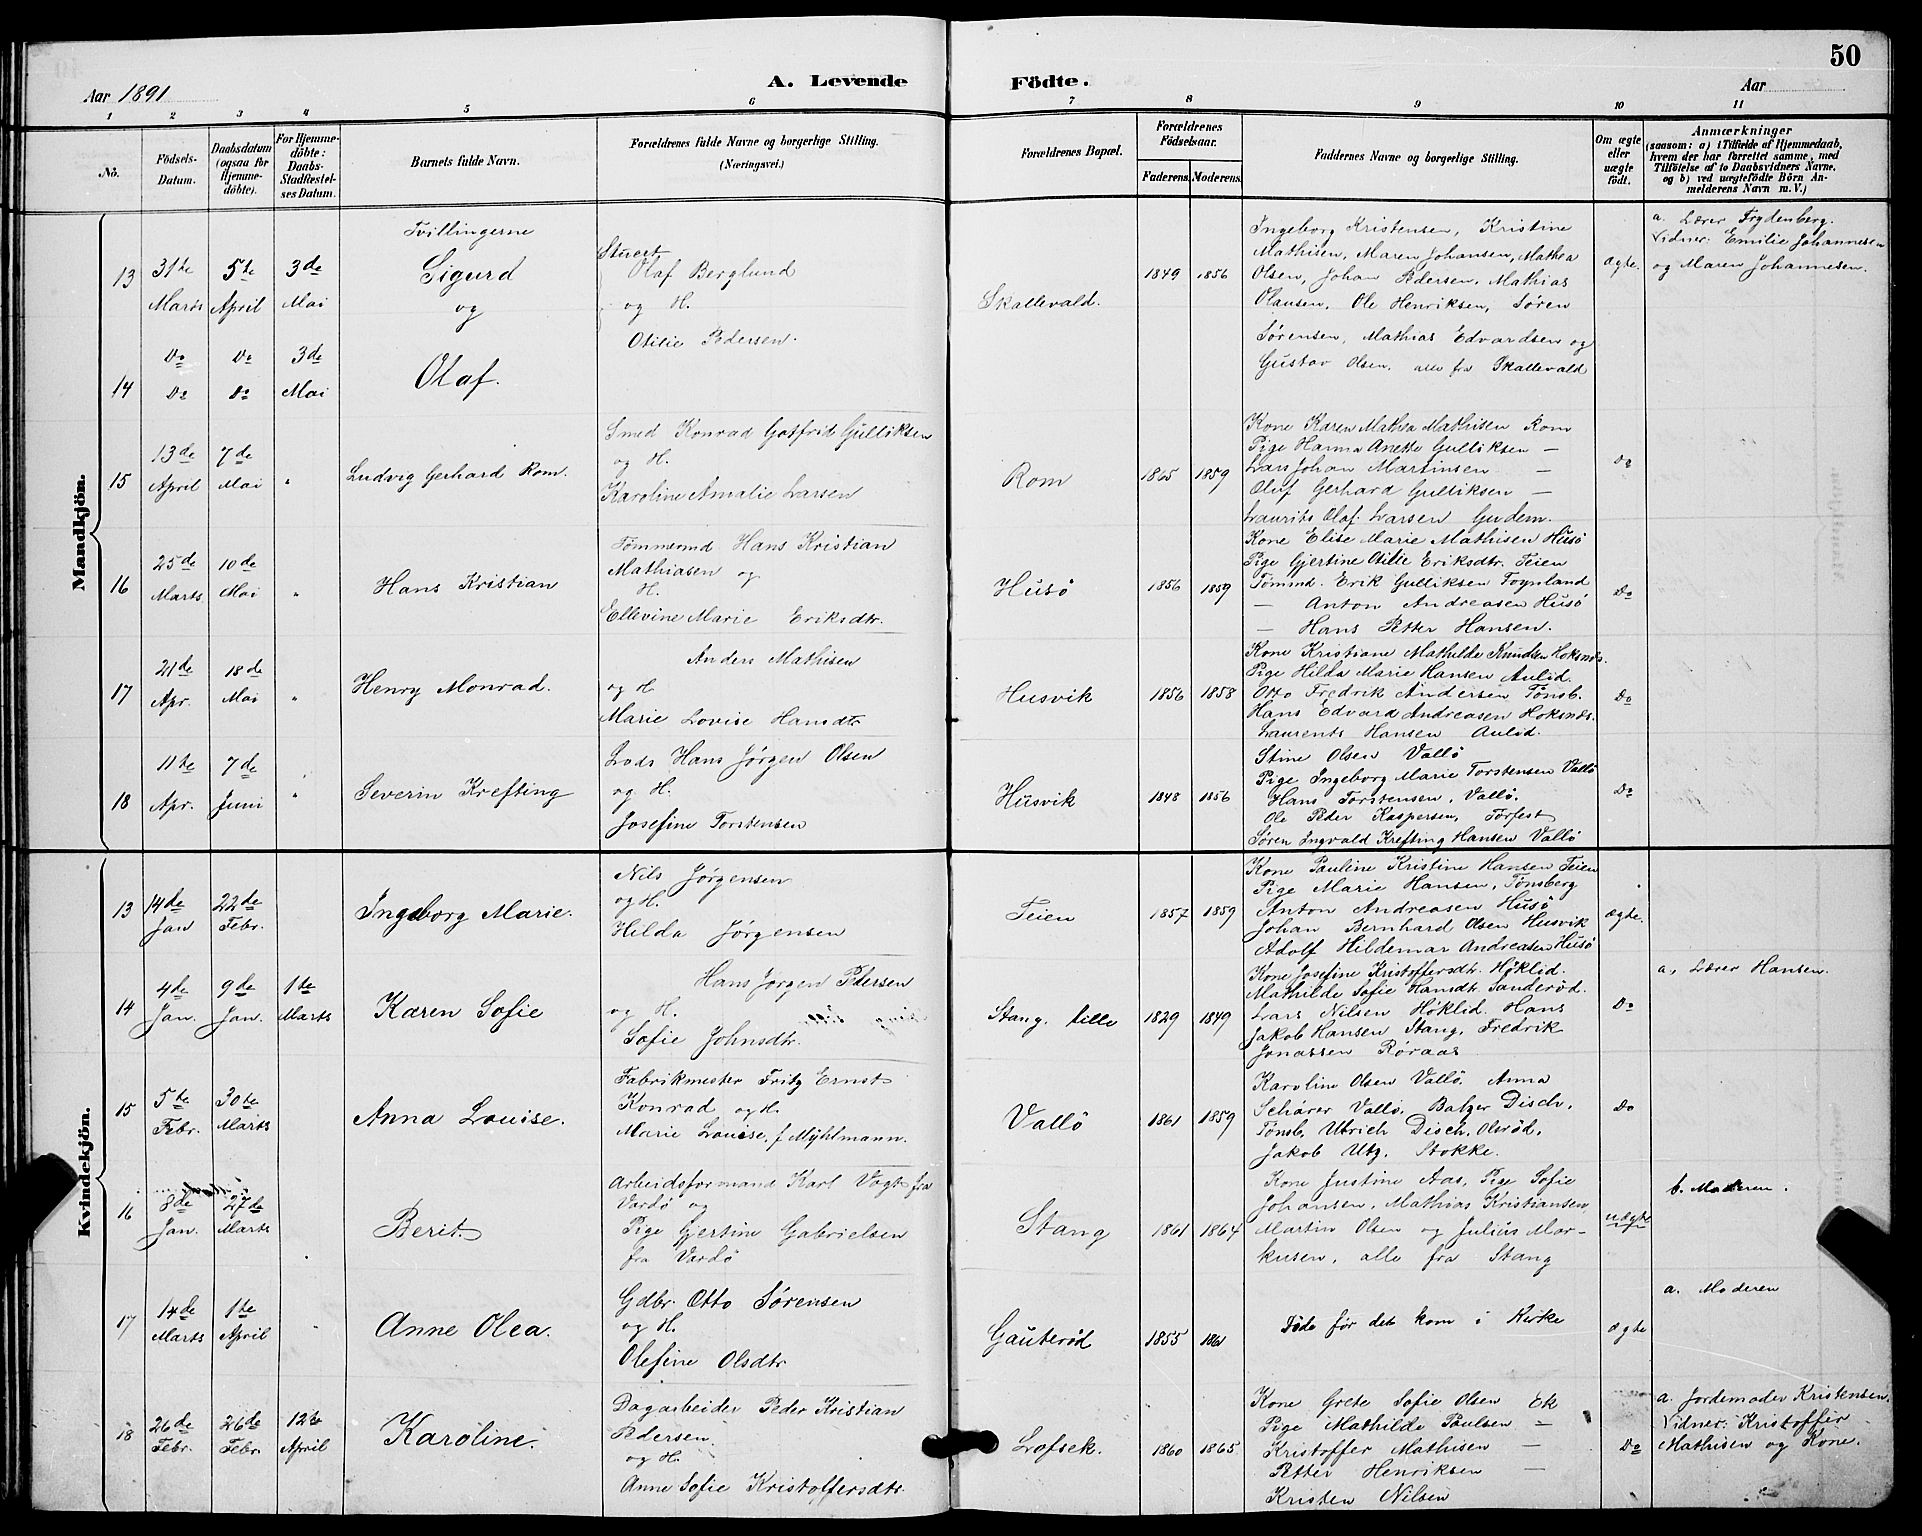 50
Aar 1891
A. Levende Födte.
Aar
1 2 3 4 5 6 7 8 9 10 11
No.
Födsels-Datum.
Daabsdatum (ogsaa for Hjemmedöbte).
For Hjemmedöbte: Daabs-Stadfæstelses Datum.
Barnets fulde Navn.
Forældrenes fulde Navne og borgerlige Stilling. (Næringsvei.)
Forældrenes Bopæl.
Forældrenes Födselsaar.
Faderens. Moderens.
Faddernes Navne og borgerlige Stilling.
Om ægte eller uægte födt.
Anmærkninger
(saasom: a) i Tilfælde af Hjemmedaab,
hvem der har forrettet samme, med
Tilföielse af to Daabsvidners Navne,
og b) ved uægtefödte Börn Anmelderens Navn m. V.)
Mandkjön.
13
31te Marts
5te April
3de Mai
Tvillingerne
Sigurd
og
Stuert
Olaf Berglund
og H.
Otilie Pedersen.
Skallevald.
1849 1856
Ingeborg Kristensen, Kristine
Mathisen, Maren Johansen, Mathea
Olsen, Johan Pedersen, Mathias
Olausen, Ole Henriksen, Søren
Sørensen, Mathias Edvardsen og
Gustav Olsen, alle fra Skallevald
Ægte.
a. Lærer Frydenberg.
Vidner: Emilie Johannesen
og Maren Johannesen.
14
Do Do
Do Do
3de Mai
Olaf.
15
13de April
7de Mai
"
Ludvig Gerhard Rom.
Smed Konrad Gotfrid Gulliksen
og H.
Karoline Amalie Larsen
Rom
1865 1859
Kone Karen Mathea Mathisen Rom
Pige Hanna Anette Gulliksen —
Lars Johan Martinsen —
Oluf Gerhard Gulliksen —
Laurits Olaf Larsen Gudem.
Do
16
25de Marts
10de Mai
"
Hans Kristian
Tømmermd. Hans Kristian
Mathiasen og
H.
Ellevine Marie Eriksdtr.
Husö
1856 1859
Kone Elise Marie Mathisen Husö
Pige Gjertine Otilie Eriksdtr. Teien
Tømmd. Erik Gulliksen Foynland
— Anton Andreasen Husö
— Hans Petter Hansen.
Do
17
21de Apr.
18de Mai
"
Henry Monrad.
Anders Mathisen
og H
Marie Lovise Hansdtr
Husvik
1856 1858
Kone Kristiane Mathilde Knudsen Hoksnds.
Pige Hilda Marie Hansen Aulid.
Otto Fredrik Andersen Tönsb.
Hans Edvard Andreasen Hoksnds.
Laurents Hansen Aulid.
Do
18
11te Apr.
7de Juni
"
Severin Krefting
Lods Hans Jørgen Olsen
og H.
Josefine Torstensen
Husvik
1848 1856
Stine Olsen Vallö
Pige Ingeborg Marie Torstensen Vallö
Hans Torstensen, Vallö.
Ole Peder Kaspersen, Torfest
Søren Ingvald Krefting Hansen Vallö
Do
Kvindekjön.
13
14de Jan
22de Febr.
Ingeborg Marie.
Nils Jørgensen
og H.
Hilda Jørgensen
Teien
1857 1859
Kone Pauline Kristine Hansen Teien
Pige Marie Hansen, Tønsberg
Anton Andreasen Husö
Johan Bernhard Olsen Husvik
Adolf Hildemar Andreasen Husö
Ægte.
14
4de Jan.
9de Jan.
1te Marts
Karen Sofie
Hans Jørgen Pedersen
og H.
Sofie Johnsdtr.
Stang, lille
1829 1849
Kone Josefine Kristoffersdtr. Höklid.
Mathilde Sofie Hansdtr. Sanderød.
Lars Nilsen Höklid. Hans
Jakob Hansen Stang, Fredrik
Jonassen Röraas
Do
a, Lærer Hansen.
15
5te Febr.
30te Marts
Anna Louise.
Fabrikmester Fritz Ernst
Konrad og H.
Marie Louise, f Mÿhlmann.
Vallö
1861 1859
Karoline Olsen Vallö. Anna
Schärer Vallö, Balzer Disch,
Tönsb, Ulrich Disch, Olsröd,
Jakob Utz. Stokke.
Do
16
8de Jan.
27te Marts
Berit
Arbeidsformand Karl Vogt fra
Vardö og
Pige Gjertine Gabrielsen
fra Vardö
Stang
1861 1864
Kone Justine Aas, Pige Sofie
Johansen, Mathias Kristiansen
Martin Olsen og Julius Mar-
kusen, alle fra Stang
uægte
b. Moderen.
17
14de Marts
1te April
Anne Olea.
Gdbr. Otto Sørensen
og H.
Olefine Olsdtr
Gauterød
1855 1861
Døde før det kom i Kirke
ægte
a. Moderen
18
26de Febr.
26de Febr.
12te April
Karoline.
Dagarbeider Peder Kristian
Pedersen
og H.
Anne Sofie Kristoffersdtr
Lofsek.
1860 1865
Kone Grete Sofie Olsen Ek
Pige Mathilde Paulsen —
Kristoffer Mathisen —
Petter Henriksen —
Kristen Nilsen
Do
a. Jordemoder Kristensen.
Vidner: Kristoffer
Mathisen og Kone.